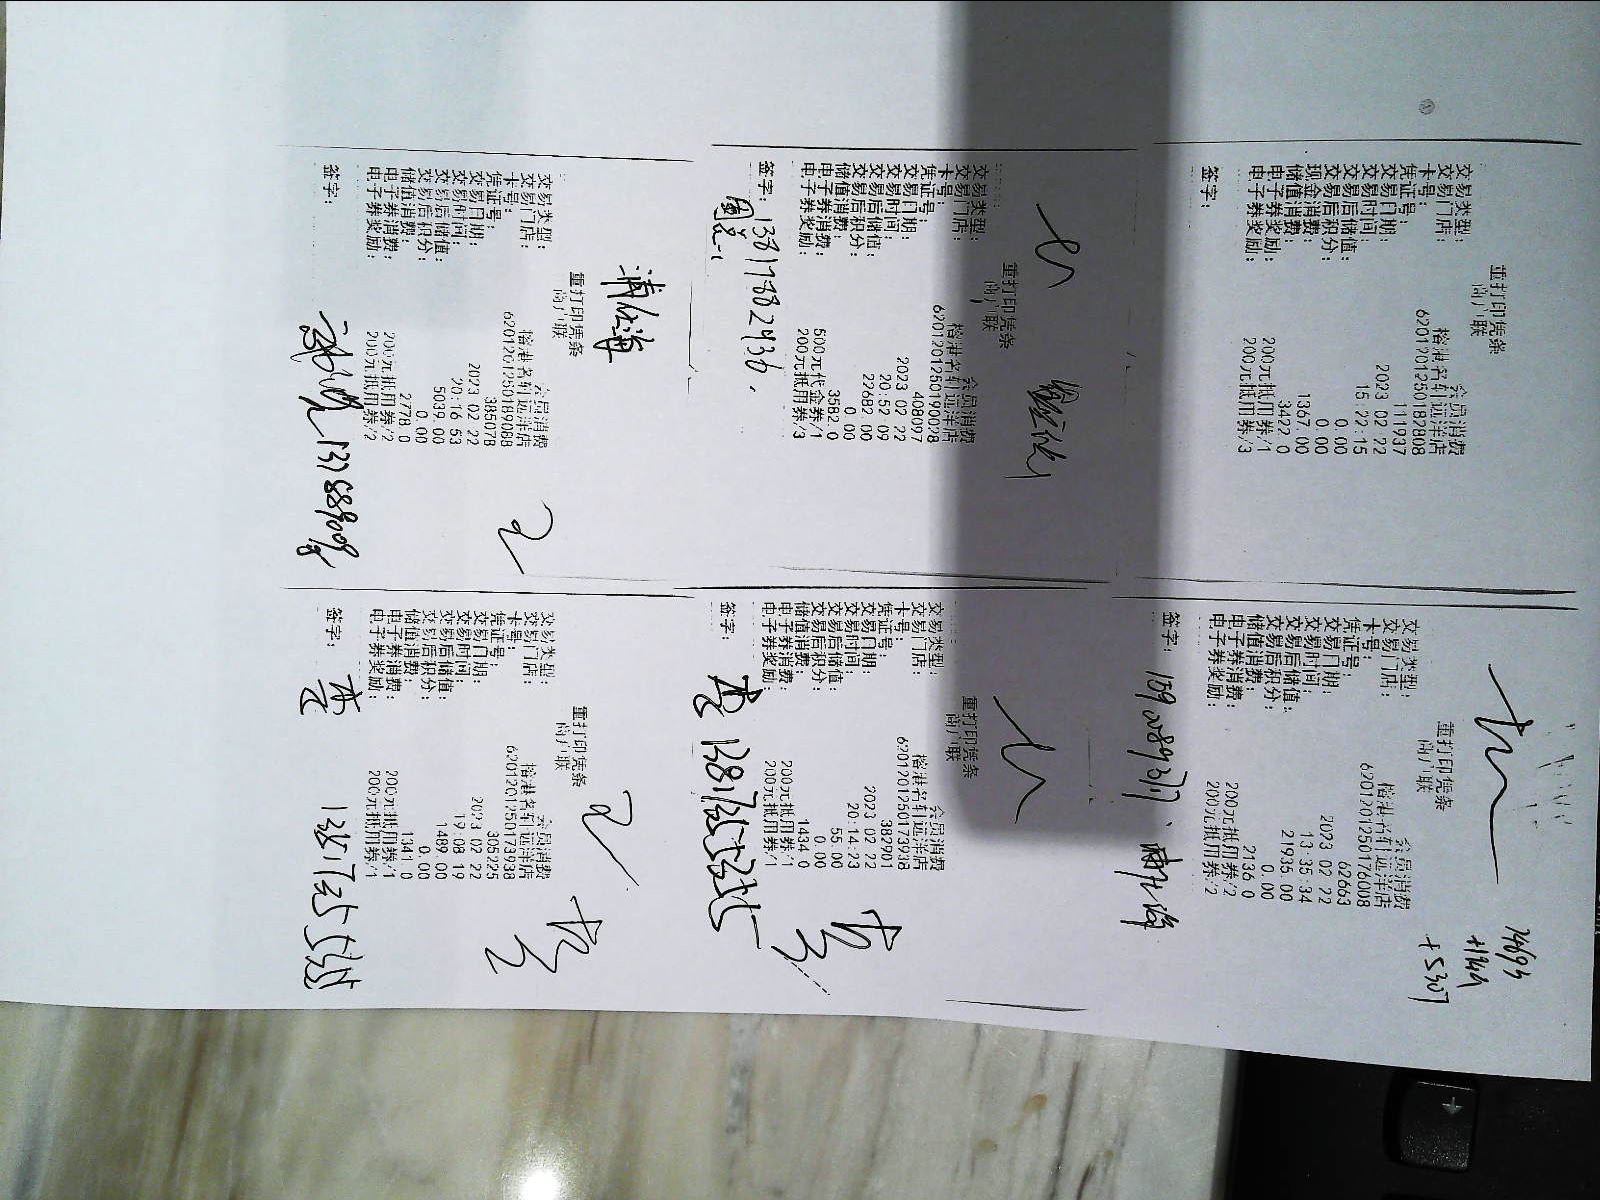 重打印凭条
商户联
交易类型： 会员消费
交易门店： 榕港名轩远洋店
卡号： 6201201250182808
凭证号： 111937
交易日期： 2023 02 22
交易时间： 15:22:15
交易后储值： 0.00
交易后积分： 0.00
现金消费： 1367.00
储值消费： 3422.0
电子券消费： 200元抵用券/1
电子券奖励： 200元抵用券/3
签字：
重打印凭条
商户联
交易类型： 会员消费
交易门店： 榕港名轩远洋店
卡号： 6201201250176008
凭证号： 62663
交易日期： 2023 02 22
交易时间： 13:35:34
交易后储值： 21935.00
交易后积分： 0.00
储值消费： 2136.0
电子券消费： 200元抵用券/2
电子券奖励： 200元抵用券/2
签字：
+5307
重打印凭条
商户联
交易类型： 会员消费
交易门店： 榕港名轩远洋店
卡号： 6201201250190028
凭证号： 408097
交易日期： 2023 02 22
交易时间： 20:52:09
交易后储值： 22682.00
交易后积分： 0.00
储值消费： 3582.0
电子券消费： 500元代金券/1
电子券奖励： 200元抵用券/3
签字： 13817882436
重打印凭条
商户联
交易类型： 会员消费
交易门店： 榕港名轩远洋店
卡号： 6201201250173938
凭证号： 382901
交易日期： 2023 02 22
交易时间： 20:14:23
交易后储值： 55.00
交易后积分： 0.00
储值消费： 1434.0
电子券消费： 200元抵用券/1
电子券奖励： 200元抵用券/1
签字：
重打印凭条
商户联
交易类型： 会员消费
交易门店： 榕港名轩远洋店
卡号： 6201201250189088
凭证号： 385078
交易日期： 2023 02 22
交易时间： 20:16:53
交易后储值： 5039.00
交易后积分： 0.00
储值消费： 2778.0
电子券消费： 200元抵用券/2
电子券奖励： 200元抵用券/2
签字：
重打印凭条
商户联
交易类型： 会员消费
交易门店： 榕港名轩远洋店
卡号： 6201201250173938
凭证号： 305225
交易日期： 2023 02 22
交易时间： 19:08:19
交易后储值： 1489.00
交易后积分： 0.00
储值消费： 1341.0
电子券消费： 200元抵用券/1
电子券奖励： 200元抵用券/1
签字：